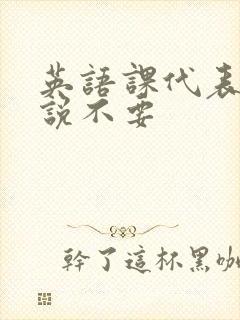 英語課代表
說不要
幹了這杯黑咖